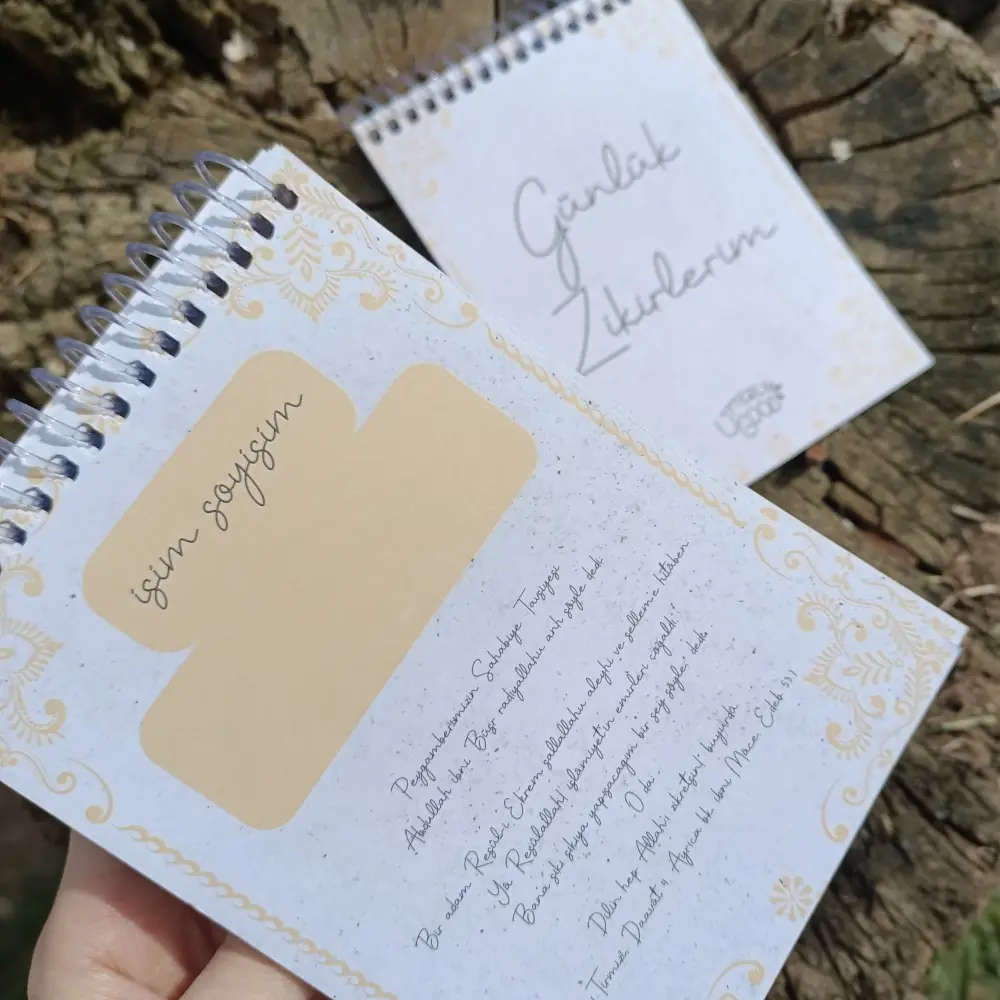 Günlük
Zikirlerim
isim soyisim
Peygamberimizin Sahabiye Tavsiyesi
Abdullah ibni Büsr radıyallahu anh şöyle dedi:
Bir adam Resûl-i Ekrem sallallahu aleyhi ve selleme hitâben
Ya Resûlallah! islamiyetin emirleri çoğaldı.
Bana sıkı sıkıya yapışacağım bir şey söyle, dedi.
O da:
Dilin hep Allah'ı zikretsin! buyurdu.
Tirmizi, Daavât 4, Ayrıca bk. ibni Mace, Edeb 53.)